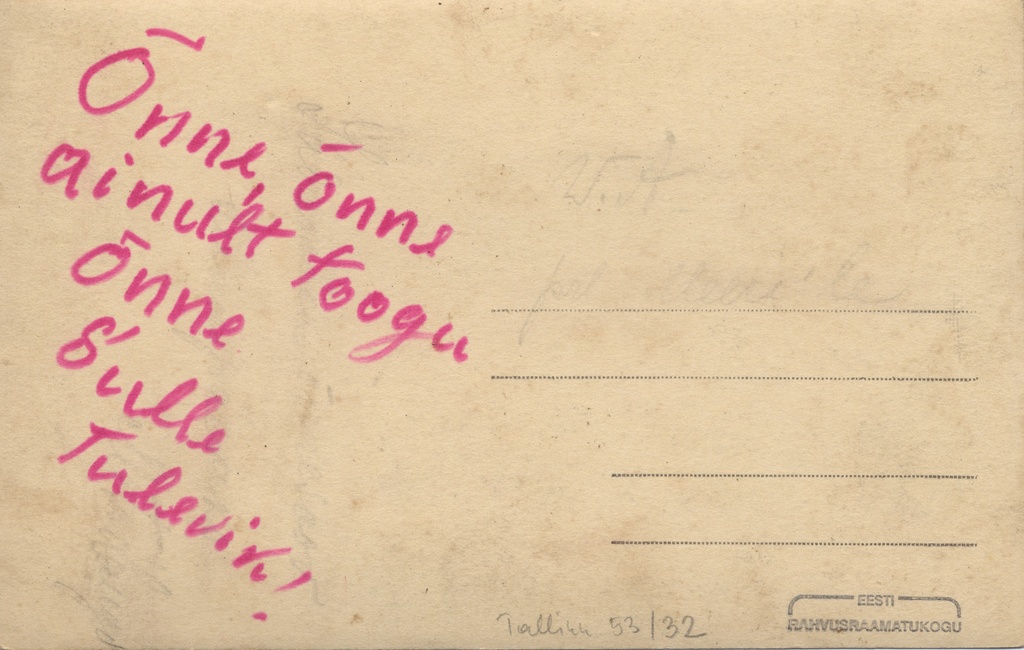 Õnne, õnne
ainult toogu
Õnne
Sulle
Tulevik!
Tallinn 53/32
EESTI
RAHVUSRAAMATUKOGU